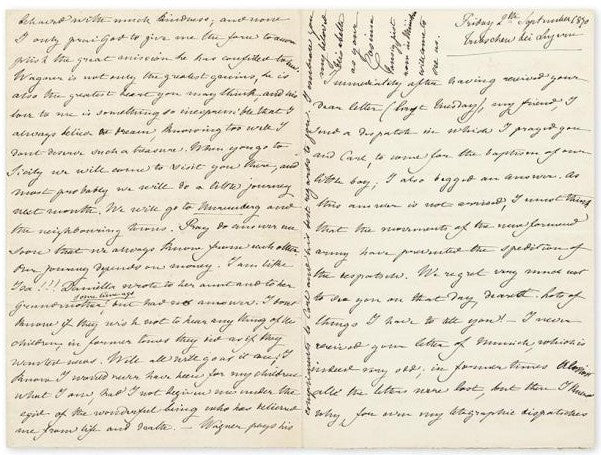 behaved with much kindness, and now
I only pray God to give me the force to accom
plish the great mission he has confided to me.
Wagner is not only the greatest genius, he is
also the greatest heart you may think, and his
love to me is something so inexpressible that I
always believe to dream knowing too well I
dont deserve such a treasure. When you go to
Sicily we will come to visit you there, and
most probably we will do a little journey
next month. We will go to Nuremberg and
the neighbouring towns. Pray do answer me
soon that we always know from each other
Our journey depends on money. I am like
!!! Daniella wrote to her aunt and to her
grandmother some time ago but had no answer. I dont
know if they wish not to hear any thing of the
children in former times they did as if they
wanted news. Well all will go as it can; I
know I would never have been for my children
what I am, had I not begun new under the
egid of the wonderful being who has believed
me from life and death. — Wagner pays his
compliments to Carl and his best regards to you. I embrace you
my beloved
as your
Cosima
welcome to
one us.
Friday 2th September 1870
Tribschen bei Luzern
Immediately after having recived your
dear letter (last Tuesday), my friend I
send a dispatch in which I prayed you
and Carl to come for the baptism of our
little boy; I also begged an answer. As
this answer is not arrived, I must think
that the movements of the new formed
army have prevented the expedition of
the despatche. We regret very much not
to see you on that day, dearest, lots of
things I have to tell you! — I never
recived your letter of Munich which is
indeed very odd; in former times almost
all the letters were lost, but then I knew
why, for even my telegraphic dispatches